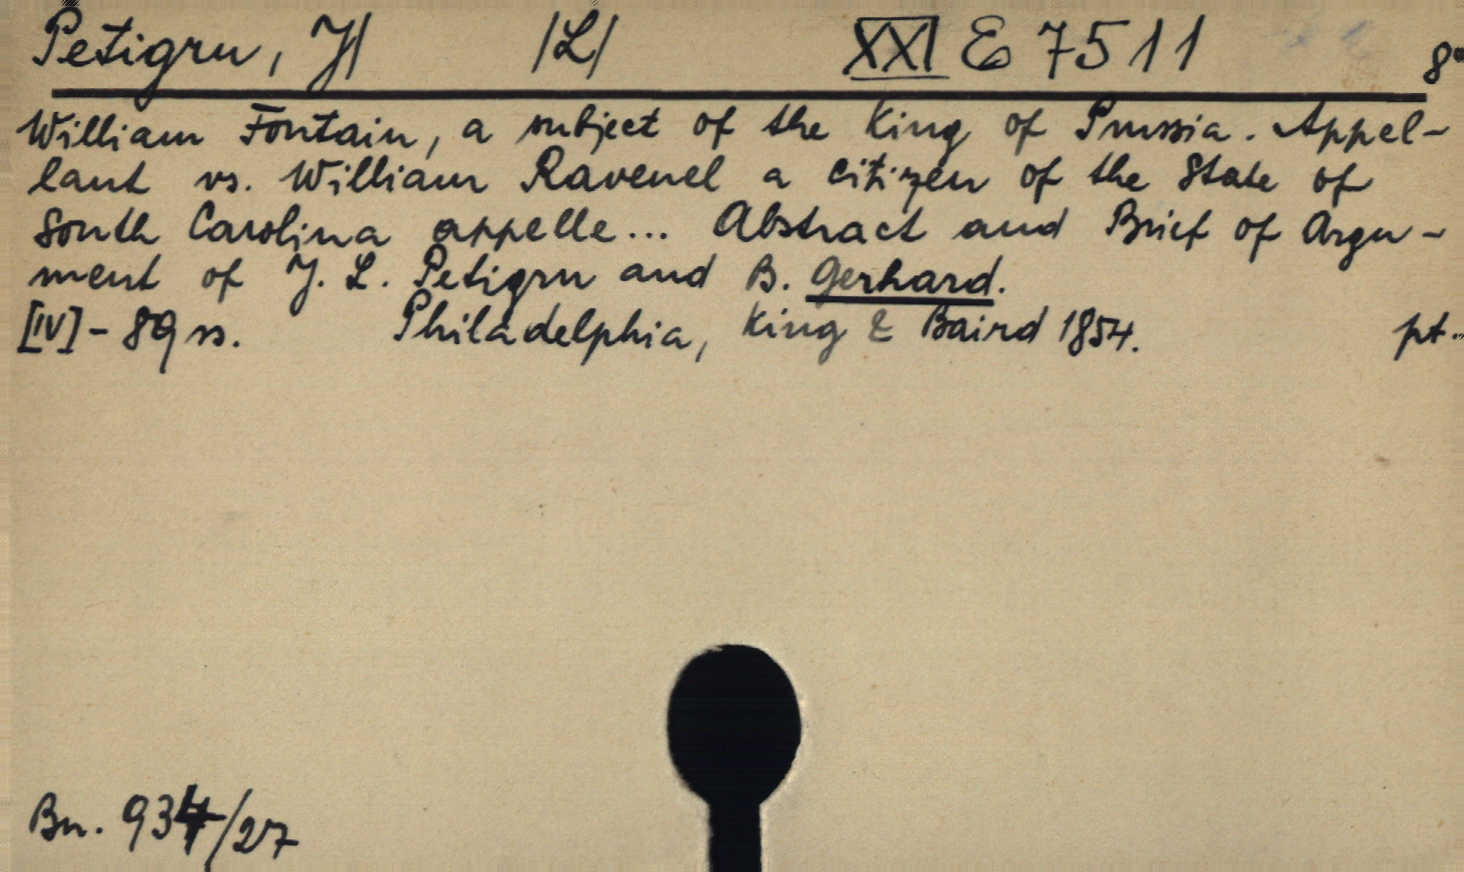 Petigru, J| |L| XXI E 7511 8°
William Fontain, a subject of the King of Prussia. Appel-
lant vs. William Ravenel a citizen of the State of
South Carolina appelle... Abstract and Brief of Argu-
ment of J. L. Petigru and B. Gerhard.
[IV] - 89 ss. Philadelphia, King & Baird 1854. pt..
Bn. 934/27